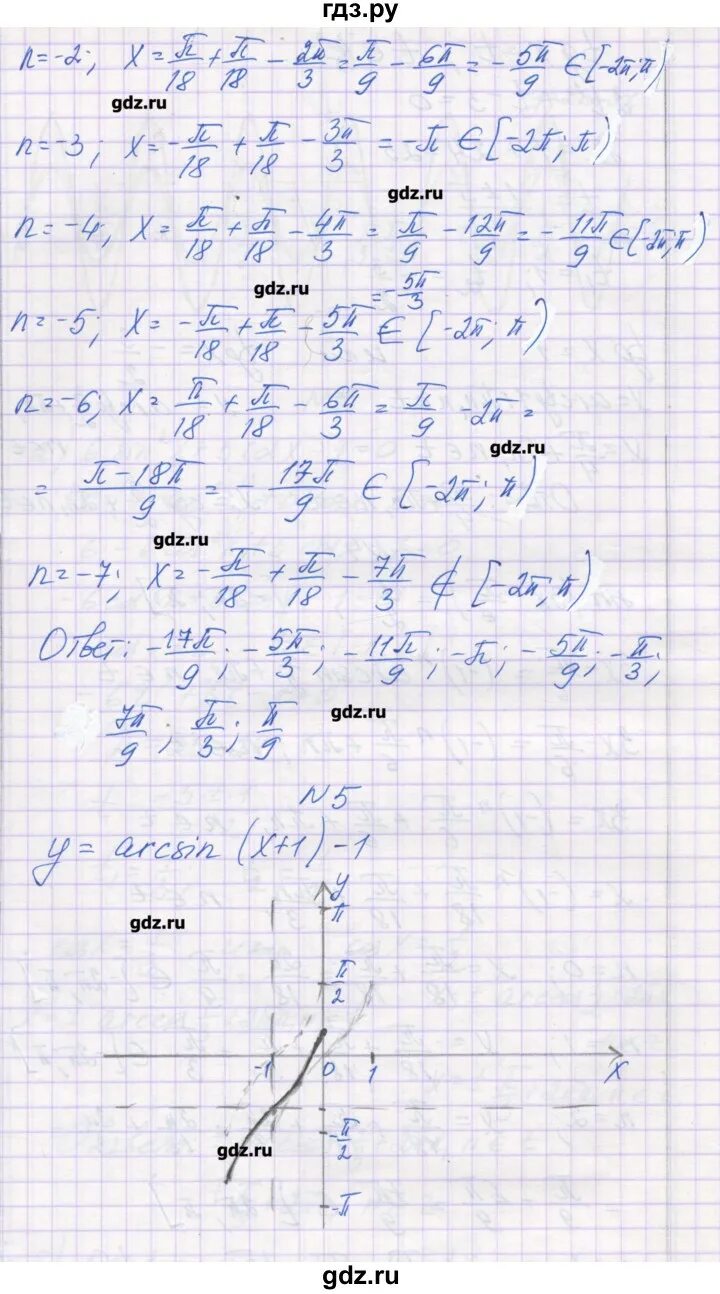 гдз.ру
n=-2; x = π/18 + π/18 - 2π/3 = π/9 - 6π/9 = - 5π/9 ∈ [-2π; π)
gdz.ru
n=-3; x = - π/18 + π/18 - 3π/3 = -π ∈ [-2π; π)
gdz.ru
n=-4; x = π/18 + π/18 - 4π/3 = π/9 - 12π/9 = - 11π/9 ∈ [-2π; π)
gdz.ru
= - 5π/3
n=-5; x = - π/18 + π/18 - 5π/3 ∈ [-2π; π)
n=-6; x = π/18 + π/18 - 6π/3 = π/9 - 2π =
gdz.ru
= π-18π/9 = - 17π/9 ∈ [-2π; π)
gdz.ru
n=-7; x = - π/18 + π/18 - 7π/3 ∉ [-2π; π)
Ответ: - 17π/9; - 5π/3; - 11π/9; -π; - 5π/9; - π/3;
gdz.ru
7π/9; π/3; π/9
N5
y = arcsin (x+1) - 1
y
gdz.ru
π
π/2
-1 0 1 x
-π/2
gdz.ru
-π
gdz.ru